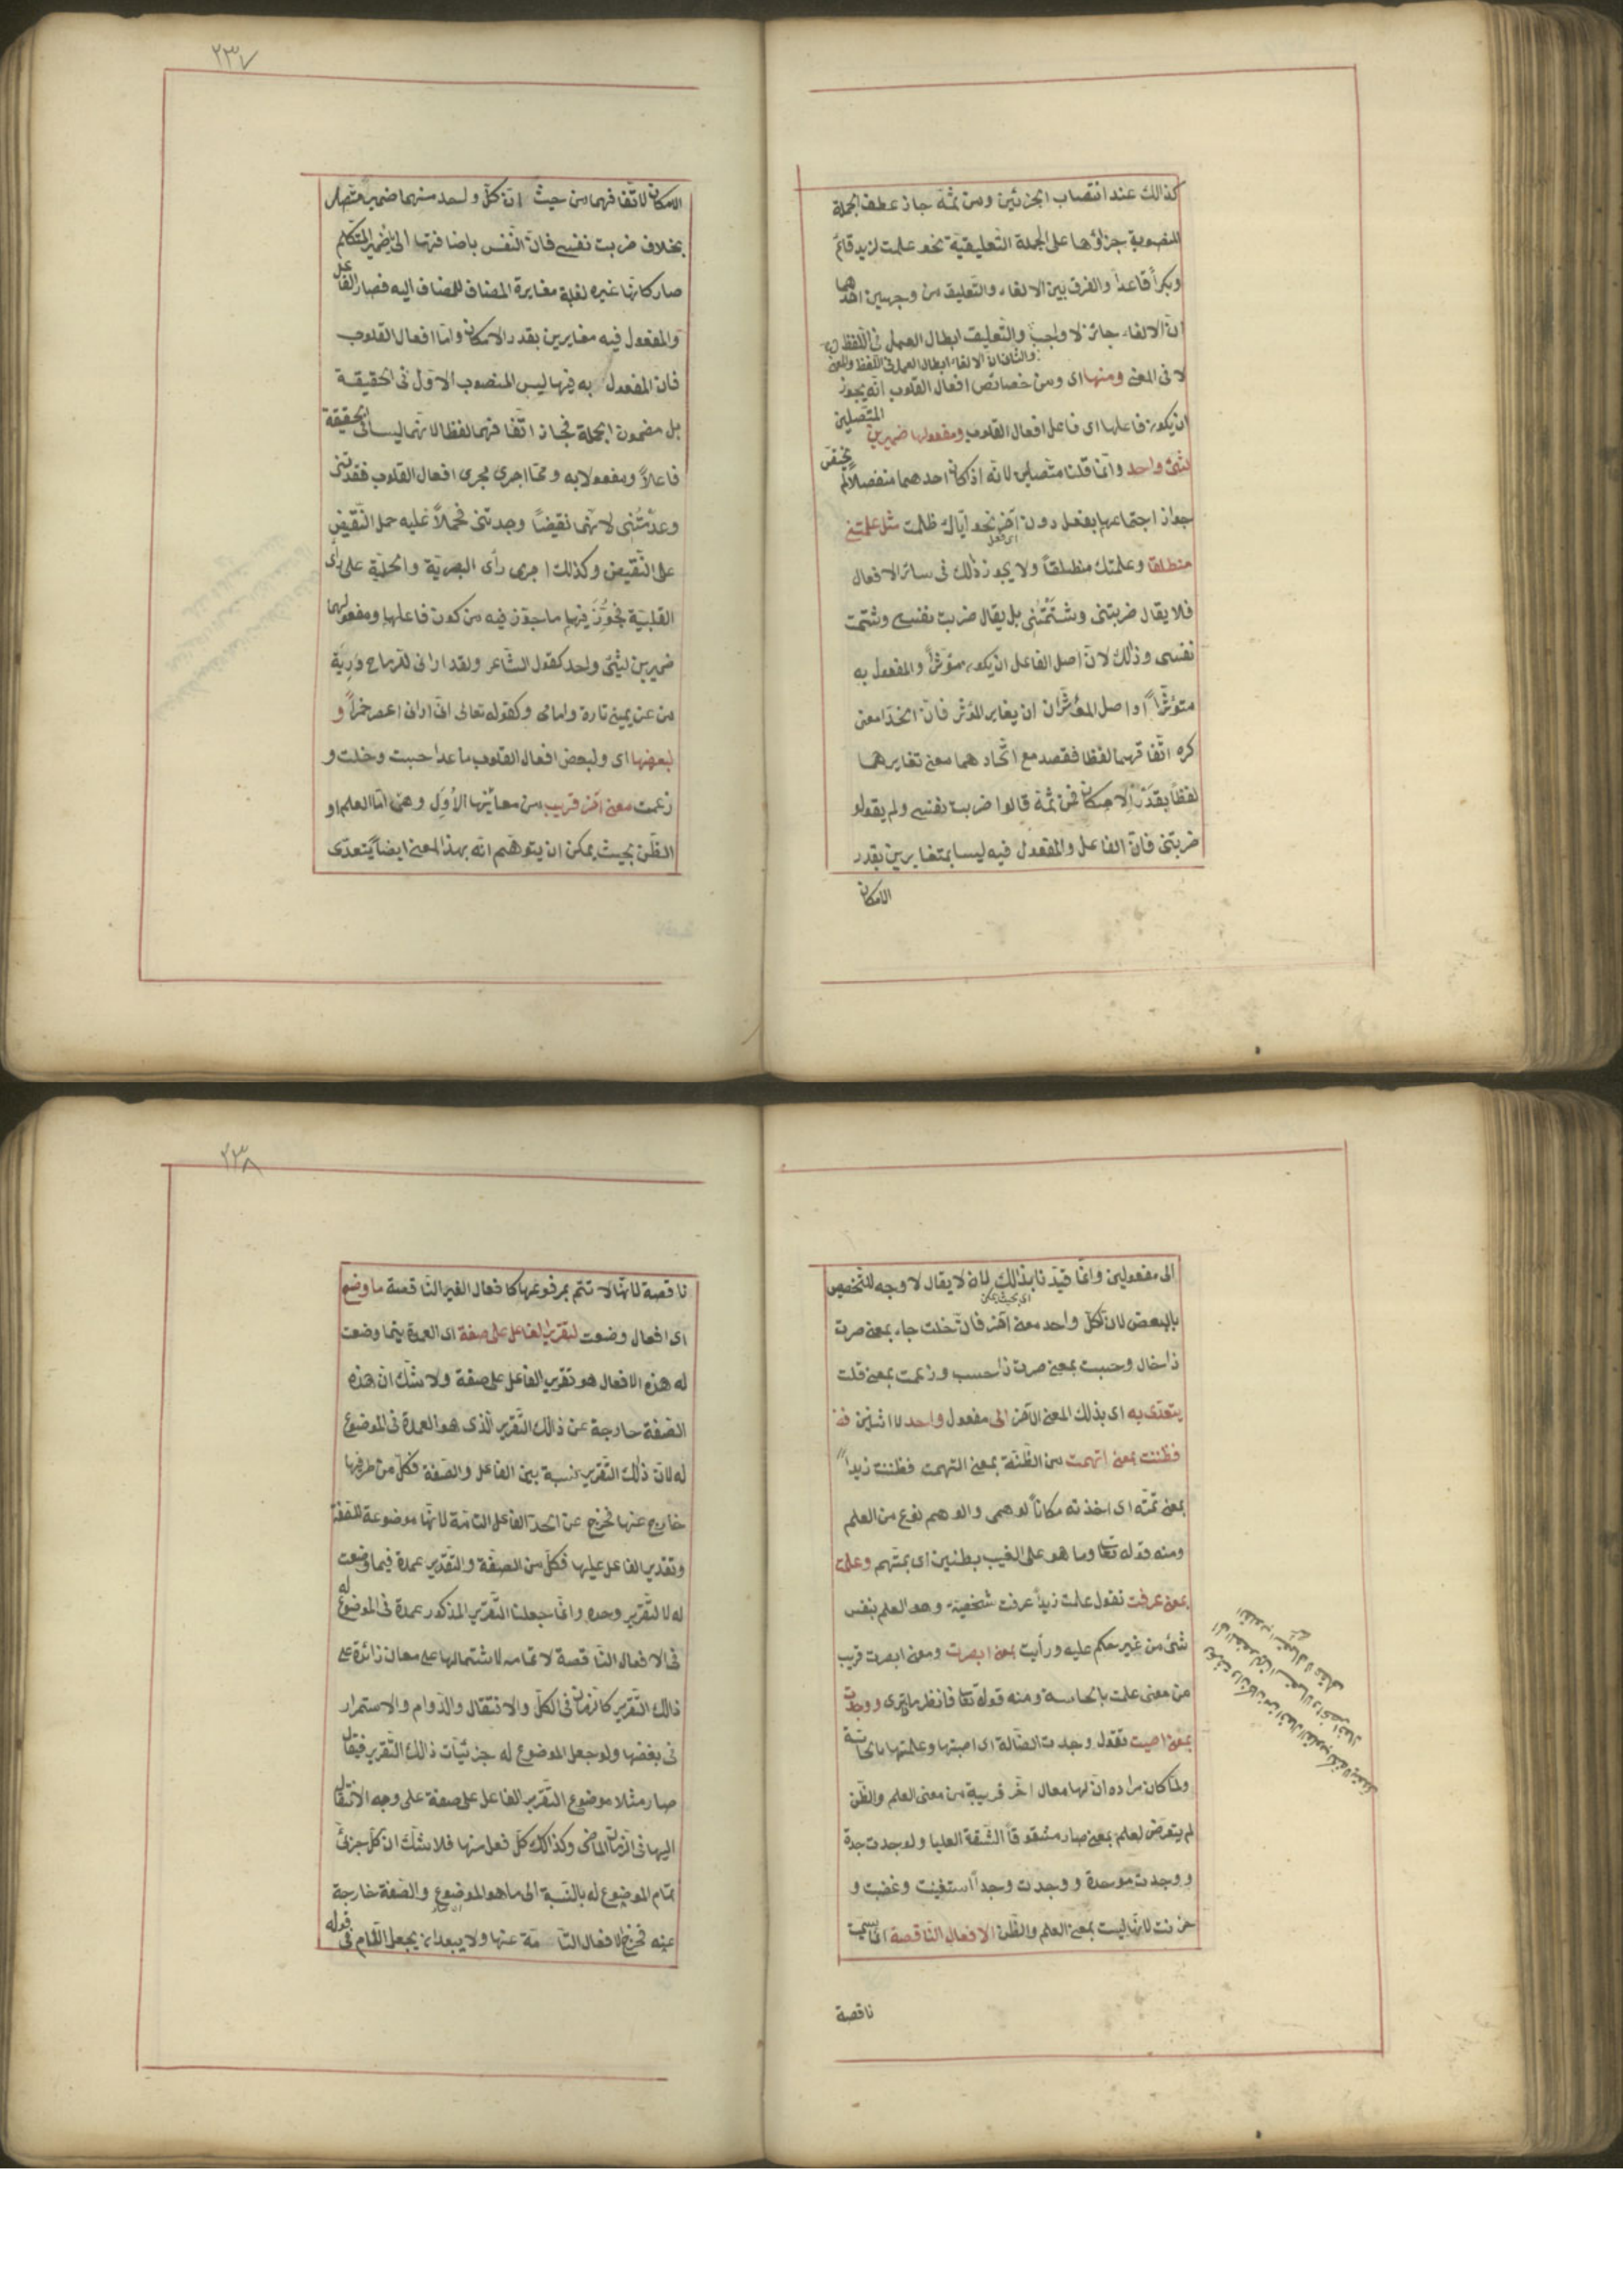 كذالك عند انتصاب الجزئين ومن ثمّة جاز عطف الجملة
المنصوبة جزؤها على الجملة التعليقيّة نحو علمت لزيد قائم
وبكراً قاعداً والفرق بين الالغاء والتعليق من وجهين احدهما
انّ الالغاء جائز لا واجب والتعليق ابطال العمل فى اللفظ
والثانى ان الالغاء ابطال العمل فى اللفظ والمعنى
لا فى المعنى ومنها اى ومن خصائص افعال القلوب انّه يجوز
ان يكون فاعلها اى فاعل افعال القلوب ومفعولها ضميرين المتّصلين
لشئ واحد وانّما قلنا متّصلين لانّه اذا كان احدهما منفصلاً لم يختصّ
جواز اجتماعهما بفعل دون آخر نحو ايّاك ظلمت مثل علمتنى
منطلقا وعلمتك منطلقاً ولا يجوز ذلك فى سائر الافعال
فلا يقال ضربتنى وشتمتنى بل يقال ضربت نفسى وشتمت
نفسى وذلك لانّ اصل الفاعل ان يكون مؤثّراً والمفعول به
متؤثّراً واصل المؤثّران ان يغاير المؤثر فان اتّحدا معنى
كره اتّفاقهما لفظا فقصد مع اتّحادهما معنى تغايرهما
لفظا بقدر الامكان فمن ثمّة قالوا ضربت نفسى ولم يقولو
ضربتنى فانّ الفاعل والمفعول فيه ليسا بمتغايرين بقدر
الامكان
٢٣٧
الامكان لاتّفاقهما من حيث انّ كلّ واحد منهما ضمير متّصل
بخلاف ضربت نفسى فانّ النّفس باضافتها الى ضمير المتكلّم
صار كانّها غيره لغلبة مغايرة المضاف للمضاف اليه فصار الفاعل
والمفعول فيه مغايرين بقدر الامكان وامّا افعال القلوب
فان المفعول به فيها ليس المنصوب الاوّل فى الحقيقة
بل مضمون الجملة فجاز اتّفاقهما لفظا لانّهما ليسا فى الحقيقة
فاعلاً ومفعولا به وممّا اجرى مجرى افعال القلوب فقدتنى
وعدمتنى لانّهما نقيضاً وجدتنى فحملاً عليه حمل النّقيض
على النّقيض وكذلك اجرى رأى البصريّة والحلميّة على رأى
القلبيّة فجوّز فيهما ما جوّز فيه من كون فاعلها ومفعولهما
ضميرين لشئ واحد كقول الشّاعر ولقد ارانى للرماح دريّة
من عن يمينى تارة وامامى وكقوله تعالى انّى ارانى اعصر خمراً و
لبعضها اى ولبعض افعال القلوب ما عدا حسبت وخلت و
زعمت معنى آخر قريب من معانيها الاُوَل وهى امّا العلم او
الظّن بحيث يمكن ان يتوهّم انّه بهذا المعنى ايضاً يتعدّى
الى مفعولين وانّما قيّدنا بذالك لان لا يقال لا وجه للتّخصيص
اى بحيث يمكن
بالبعض لانّ لكلّ واحد معنى آخر فانّ خلت جاء بمعنى صرت
ذا خال وحسبت بمعنى صرت ذا حسب وزعمت بمعنى قلت
يتعدّى به اى بذلك المعنى الآخر الى مفعول واحد لا اثنين
فظننت بمعنى اتهمت من الظّنّة بمعنى التهمت فظننت زيداً
بمعنى تمّته اى اخذته مكاناً لوهمى والوهم نوع من العلم
ومنه قوله تعا وما هو على الغيب بظنين اى بمتّهم وعلمت
بمعنى عرفت تقول علمت زيداً عرفت شخصيّة وهو العلم بنفس
شئ من غير حكم عليه ورأيت بمعنى ابصرت ومعنى ابصرت قريب
من معنى علمت بالحاسة ومنه قوله تعا فانظر ماذا ترى ووجدت
بمعنى اصبت تقول وجدت الضّالة اى اصبتها وعلمتها بالحاسّة
ولمّا كان مراده انّ لها معان اخر قريبة من معنى العلم والظّن
لم يتعرّض لعلم بمعنى صار مشقوقاً الشّفة العليا ولوجدت جدة
ووجدت موحدة ووجدت وجداً استغنيت وغضبت و
حزنت لانّها ليست بمعنى العلم والظّن الافعال النّاقصة انّما سمّيت
ناقصة
٢٣٨
ناقصة لانّها لا تتمّ بمرفوعها كافعال الغير النّاقصة ما وضع
اى افعال وضعت لتقرير الفاعل على صفة اى العمدة فيما وضعت
له هذه الافعال هو تقرير الفاعل على صفة ولا شكّ ان هذه
الصّفة خارجة عن ذالك التّقرير الّذى هو العمدة فى الموضوع
له لانّ ذلك التّقرير نسبة بين الفاعل والصّفة فكلّ من طرفيها
خارج عنها فخرج عن الحدّ الفاعل التامّة لانّها موضوعة للصّفة
وتقرير الفاعل عليها فكلّ من الصّفة والتّقرير عمدة فيما وضعت
له لا التّقرير وحده وانّما جعلنا التّقرير المذكور عمدة فى الموضوع له
فى الافعال النّاقصة لا تمامه لاشتمالها على معان زائدة على
ذالك التّقرير كالزّمان فى الكلّ والانتقال والدّوام والاستمرار
فى بعضها ولو جعل الموضوع له جزئيّات ذالك التّقرير فيقال
صار مثلا موضوع التّقرير الفاعل على صفة على وجه الانتقال
اليها فى الزّمان الماضى وكذالك كلّ فعل منها فلا شكّ ان كلّ جزئى
تمام الموضوع له بالنّسبة الى ما هو الموضوع والصّفة خارجة
عنه فخرج الافعال التّامّة عنها ولا يبعد ان يجعل اللّام فى قوله